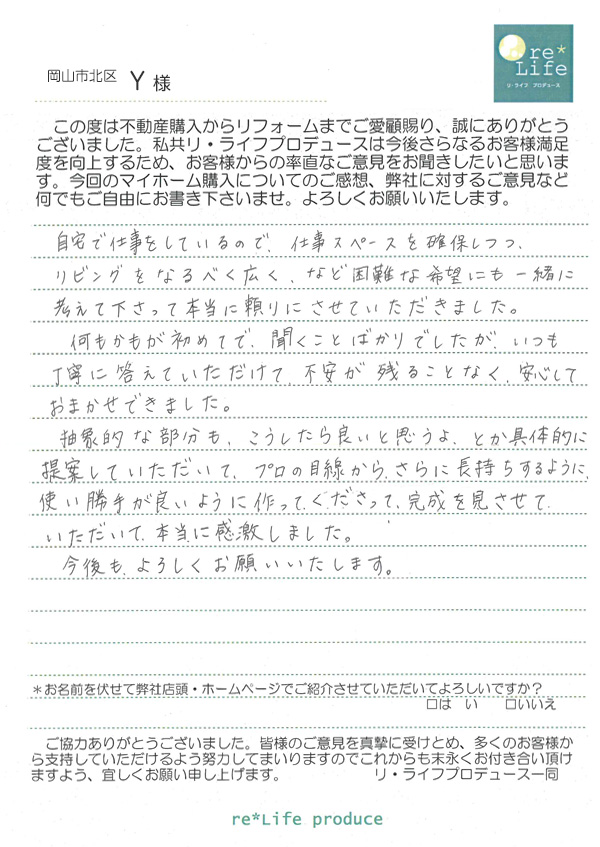 岡山市北区 Y 様
re*
Life
リ・ライフ プロデュース
この度は不動産購入からリフォームまでご愛顧賜り、誠にありがとう
ございました。私共リ・ライフプロデュースは今後さらなるお客様満足
度を向上するため、お客様からの率直なご意見をお聞きしたいと思いま
す。今回のマイホーム購入についてのご感想、弊社に対するご意見など
何でもご自由にお書き下さいませ。よろしくお願いいたします。
自宅で仕事をしているので、仕事スペースを確保しつつ、
リビングをなるべく広く、など困難な希望にも一緒に
考えて下さって本当に頼りにさせていただきました。
何もかもが初めてで、聞くことばかりでしたが、いつも
丁寧に答えていただけて、不安が残ることなく、安心して
おまかせできました。
抽象的な部分も、こうしたら良いと思うよ、とか具体的に
提案していただいて、プロの目線から、さらに長持ちするように、
使い勝手が良いように作ってくださって、完成を見させて
いただいて、本当に感激しました。
今後も、よろしくお願いいたします。
*お名前を伏せて弊社店頭・ホームページでご紹介させていただいてよろしいですか？
□は い □いいえ
ご協力ありがとうございました。皆様のご意見を真摯に受けとめ、多くのお客様か
ら支持していただけるよう努力してまいりますのでこれからも末永くお付き合い頂け
ますよう、宜しくお願い申し上げます。 リ・ライフプロデュース一同
re*Life produce